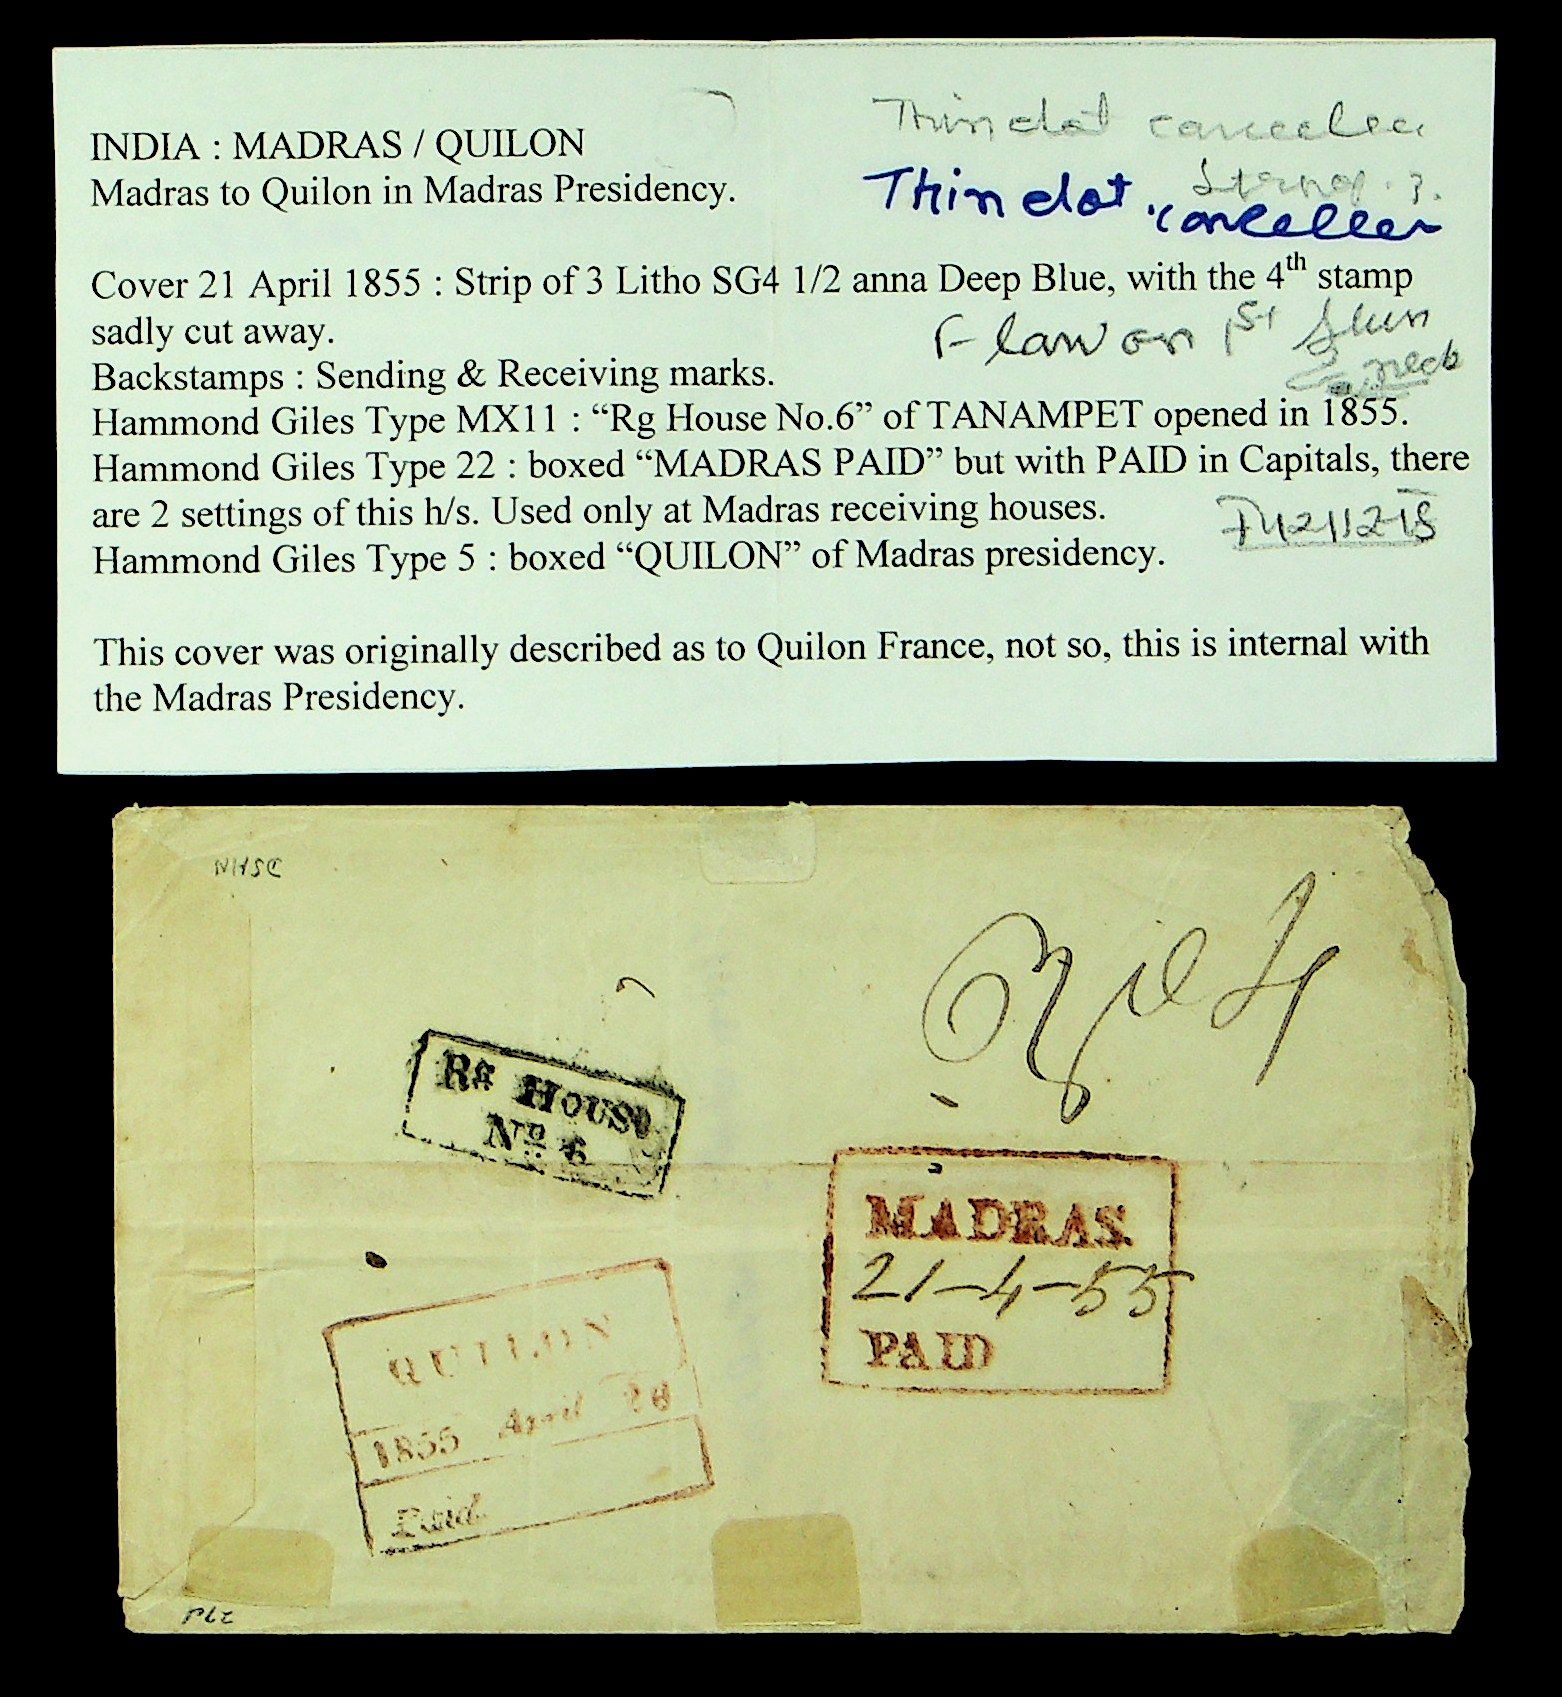 Thin dot canceller
INDIA : MADRAS / QUILON
Madras to Quilon in Madras Presidency.
Thin dot canceller
Cover 21 April 1855 : Strip of 3 Litho SG4 1/2 anna Deep Blue, with the 4th stamp
sadly cut away.
Flaw on 1st
neck
Backstamps : Sending & Receiving marks.
Hammond Giles Type MX11 : “Rg House No.6” of TANAMPET opened in 1855.
Hammond Giles Type 22 : boxed “MADRAS PAID” but with PAID in Capitals, there
are 2 settings of this h/s. Used only at Madras receiving houses.
Hammond Giles Type 5 : boxed “QUILON” of Madras presidency.
This cover was originally described as to Quilon France, not so, this is internal with
the Madras Presidency.
NHSC
Rg HOUSE
No 6
MADRAS.
21-4-55
PAID
QUILON
1855 April 28
Paid